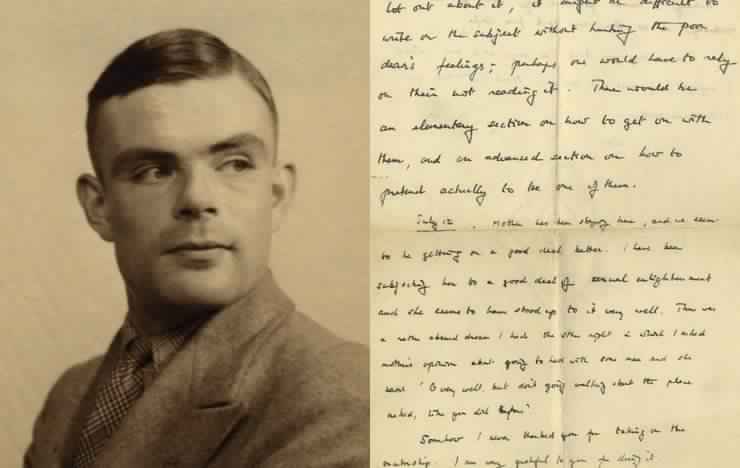 lot out about it, it might be difficult to
write on the subject without hurting the poor
dear's feelings; perhaps one would have to rely
on their not reading it. There would be
an elementary section on how to get on with
them, and an advanced section on how to
pretend actually to be one of them.
July 12. Mother has been staying here, and we seem
to be getting on a good deal better. I have been
subjecting her to a good deal of sexual enlightenment
and she seems to have stood up to it very well. There was
a rather absurd dream I had the other night in which I asked
mother's opinion about going to bed with some men and she
said 'O very well, but don't go walking about the place
naked, like you did before'
Somehow I never thanked you for taking on the
I am very grateful to you for doing it